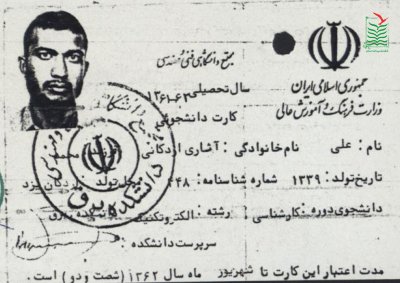 جمهوری اسلامی ایران
وزارت فرهنگ و آموزش عالی
مجتمع دانشگاهی فنی و مهندسی
سال تحصیلی ۶۲-۱۳۶۱
کارت دانشجویی
نام : علی نام خانوادگی : آشاری اردکانی
تاریخ تولد : ۱۳۳۹ شماره شناسنامه : ۴۴۸ محل تولد
دانشجوی دوره : کارشناسی رشته : الکتروتکنیک
سرپرست دانشکده :
مدت اعتبار این کارت تا شهریور ماه سال ۱۳۶۲ (شصت و دو) است .
دانشکده برق